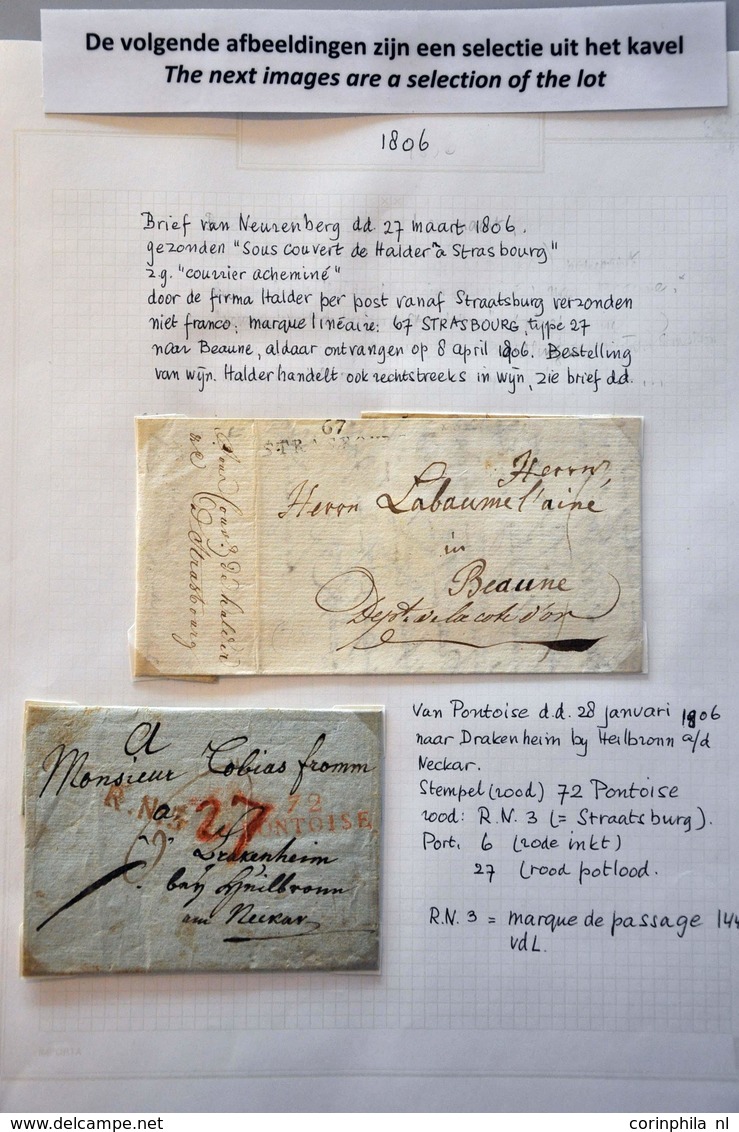 De volgende afbeeldingen zijn een selectie uit het kavel
The next images are a selection of the lot
1806
Brief van Neurenberg dd. 27 maart 1806.
gezonden "Sous couvert de Halder à Strasbourg"
zg. "courrier acheminé"
door de firma Halder per post vanaf Straatsburg verzonden
niet franco; marque linéaire: 67 STRASBOURG, type 27
naar Beaune, aldaar ontvangen op 8 april 1806. Bestelling
van wijn. Halder handelt ook rechtstreeks in wijn, zie brief d.d. ...
67
STRASBOURG
Herrn,
Herrn Labaume l'ainé
in
Beaune
Dept. de la cote d'or
de halder
a Strasbourg
a
Monsieur Tobias fromm
R.N.3 27 72
PONTOISE
a
Drakenheim
bey Heilbronn
am Neckar
Van Pontoise d.d. 28 januari 1806
naar Drakenheim by Heilbronn a/d
Neckar.
Stempel (rood) 72 Pontoise
rood: R.N. 3 (= Straatsburg).
Port. 6 (rode inkt)
27 (rood potlood.
R.N. 3 = marque de passage 144
vdL.
corinphila nl